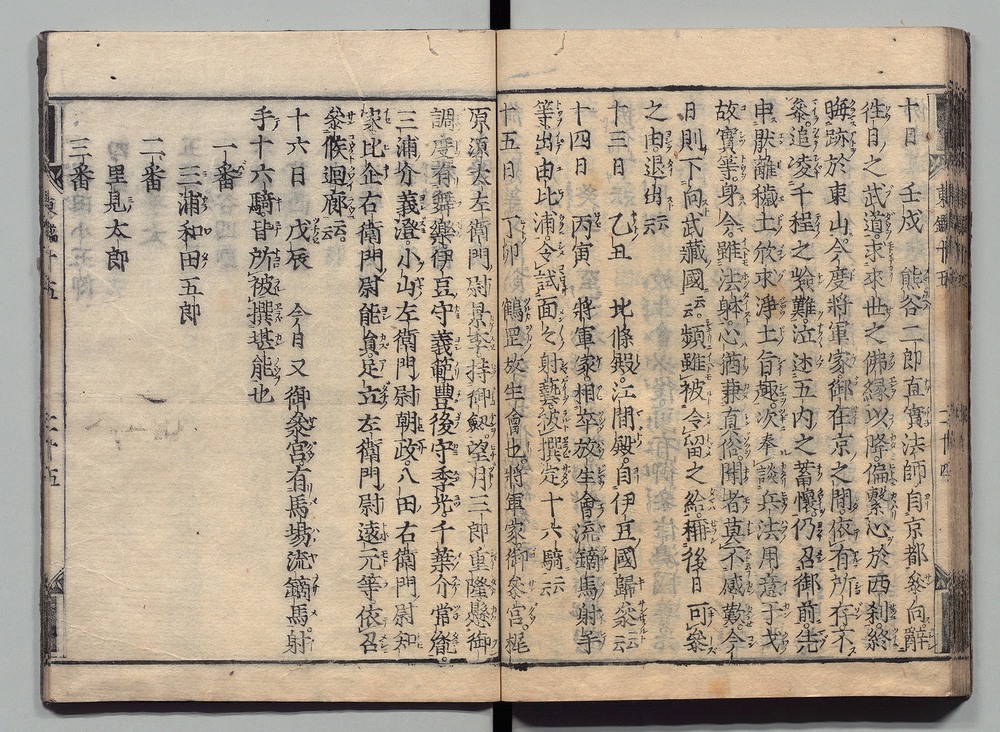 十日 壬戌 熊谷二郎直實法師自京都參向辭
徃日之武道求來世之佛縁以降偏繫心於西刹終
晦跡於東山今度將軍家御在京之間依有所存不
參追凌千程之嶮難泣述五内之蓄懷仍召御前先
申厭離穢土欣求淨土旨趣次奉談兵法用意干戈
故實等身今雖法躰心猶兼眞俗聞者莫不感歎今
日則下向武藏國云云頻雖被令留之給稱後日可參
之由退出云云
十三日 乙丑 北條殿江間殿自伊豆國歸參云云
十四日 丙寅 將軍家相卒放生會流鏑馬射手
等出由比浦令試面々射藝被撰定十六騎云云
十五日 丁卯 鶴岡放生會也將軍家御參宮梶
原源太左衛門尉景季持御劔望月三郎重隆懸御
調度有舞樂伊豆守義範豐後守季光千葉介常胤
三浦介義澄小山左衛門尉朝政八田右衛門尉知
家比企右衛門尉能員足立左衛門尉遠元等依召
參候廻廊云云
十六日 戊辰 今日又御參宮有馬塲流鏑馬射
手十六騎皆所被撰堪能也
一番
三浦和田五郎
二番
里見太郎
三番